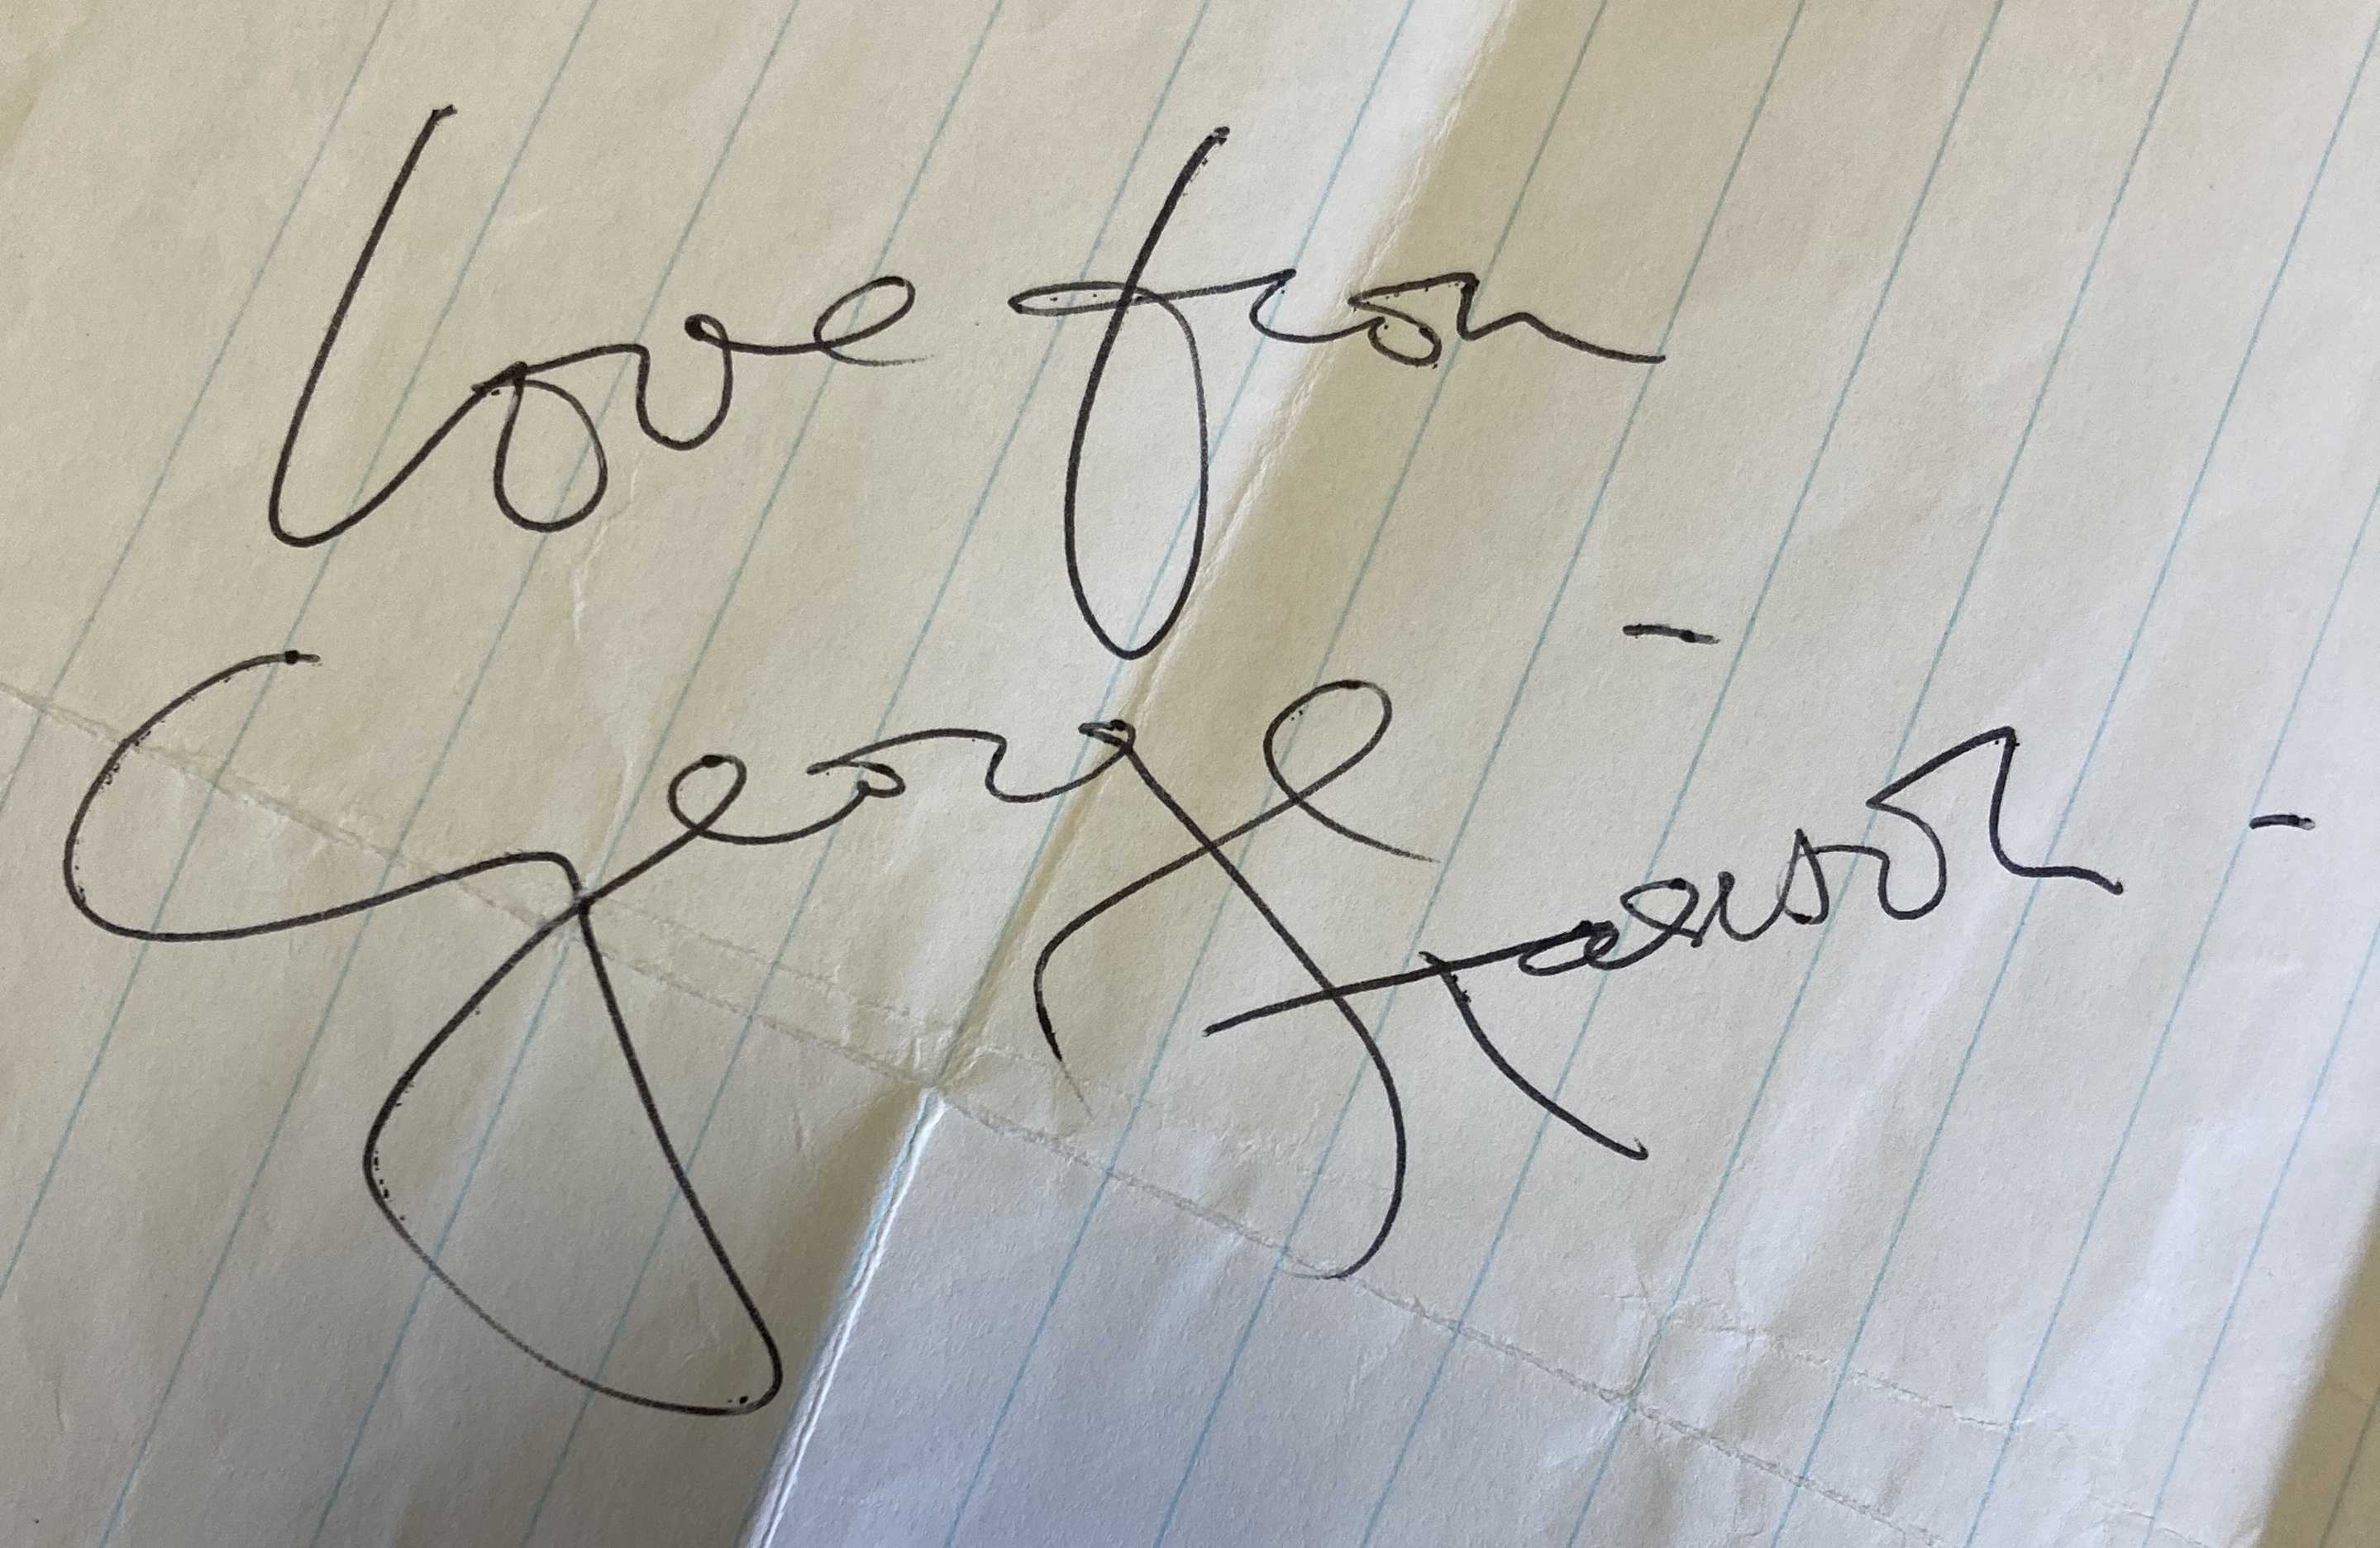 Love from
George Harrison